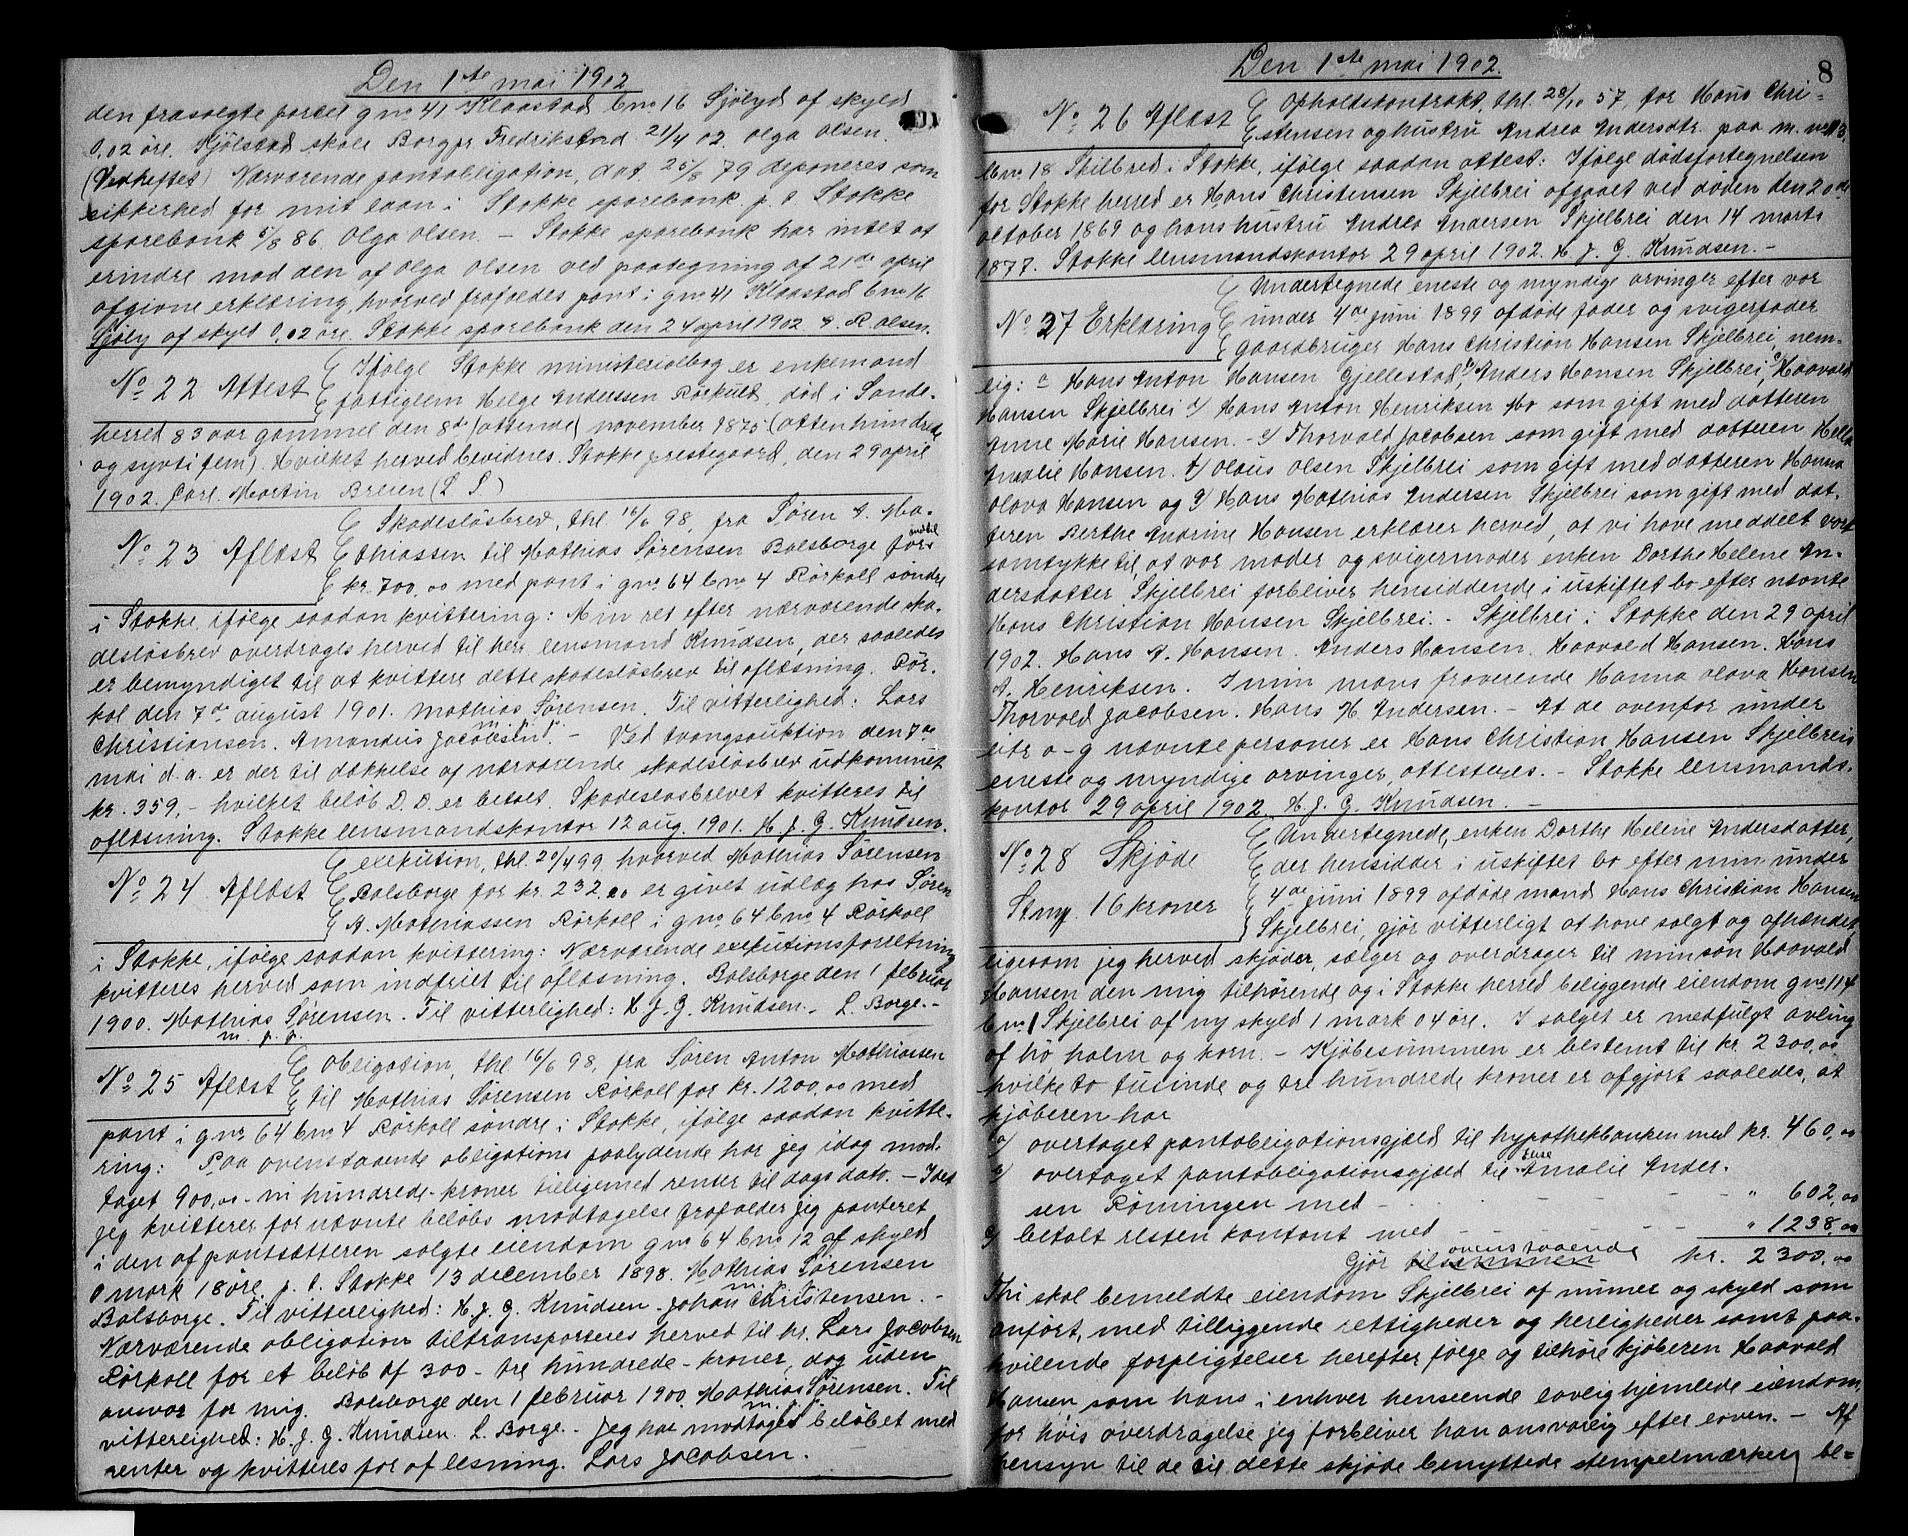 Den 1ste mai 1902
den frasolgte parcel gno 41 Klaastad bno 16 Sjölyd af skyld
0,02 öre. Kjölstad skole Borge pr Fredrikstad 21/4 02. Olga Olsen.
(Vedheftet) Nærværende pantobligation, dat. 25/8 79 deponeres som
sikkerhed for mit laan i Stokke sparebank. p. t. Stokke
sparebank 5/8 86. Olga Olsen. – Stokke sparebank har intet at
erindre mod den af Olga Olsen ved paategning af 21de april
afgivne erklæring, hvorved frafaldes pant i gno 41 Klaastad bno 16
Sjöly af skyld 0,02 öre. Stokke sparebank den 24 april 1902. R. Olsen.
No 22 Attest
Ifölge Stokke ministerialbog er enkemand
fattiglem Helge Anderssen Rörkuld, död i Sande-
herred 83 aar gammel den 8de (ottende) november 1875 (atten hundrede
og sytti fem). Hvilket herved bevidnes. Stokke prestegaard, den 29 april
1902. Carl Martin Breien (L. S.)
No 23 Aflæst
Skadeslösbrev, thl. 16/6 98, fra Søren A. Ma-
thiassen til Mathias Sørensen Bolsborge for indtil
kr. 700,00 med pant i gno 64 bno 4 Rörkoll söndre
i Stokke, ifölge saadan kvittering: Min ret efter nærværende ska-
deslösbrev overdrages herved til herr lensmand Knudsen, der saaledes
er bemyndiget til at kvittere dette skadeslösbrev til aflæsning. Rör-
kol den 7de august 1901. Mathias Sørensen. Til vitterlighed: Lars
m. p. p.
Christiansen. Amandus Jacobsen. – Ved tvangsauktion den 7de
mai d. a. er der til dækkelse af nærværende skadeslösbrev udkommet
kr. 359,- hvilket belöb D. D. er betalt. Skadeslösbrevet kvitteres til
aflæsning. Stokke lensmandskontor 12 aug. 1901. H. J. G. Knudsen.
No 24 Aflæst
Exekution, thl. 20/4 99, hvorved Mathias Sørensen
Bolsborge for kr. 232,20 er givet udlæg hos Søren
A. Mathiassen Rörkoll i gno 64 bno 4 Rörkoll
i Stokke, ifölge saadan kvittering: Nærværende exekutionsforretning
kvitteres herved som indfriet til aflæsning. Bolsborge den 1 februar
1900. Mathias Sørensen. Til vitterlighed: H. J. G. Knudsen. L. Borge. –
m. p. p.
No 25 Aflæst
Obligation, thl. 16/6 98, fra Søren Anton Mathiassen
til Mathias Sørensen Rörkoll for kr. 1200,00 med
pant i gno 64 bno 4 Rörkoll söndre i Stokke, ifölge saadan kvitte-
ring: Paa ovenstaaende obligations paalydende har jeg idag mod-
taget 900,00 – ni hundrede – kroner tilligemed renter til dags dato. – Idet
jeg kvitterer for nævnte belöbs modtagelse frafalder jeg panteret
i den af pantsætteren solgte eiendom gno 64 bno 12 af skyld
0 mark 18 öre. p. t. Stokke 13 december 1898. Mathias Sørensen
m. p. p.
Bolsborge. Til vitterlighed: H. J. G. Knudsen. Johan Christensen. –
Nærværende obligation tiltransporteres herved til hr. Lars Jacobsen
Rörkoll for et belöb af 300 – tre hundrede – kroner, dog uden
ansvar for mig. Bolsborge den 1 februar 1900. Mathias Sørensen. Til
m. p. p.
vitterlighed: H. J. G. Knudsen. L. Borge. – Jeg har modtaget belöbet med
renter og kvitteres for aflesning. Lars Jacobsen.
8
Den 1ste mai 1902.
No 26 Aflæst
Opholdskontrakt, thl. 28/10 57, for Hans Chri-
stensen og hustru Andrea Andersdtr. paa m. no 113,
bno 18 Skilbred i Stokke, ifölge saadan attest: Ifölge dödsfortegnelsen
for Stokke herred er Hans Christensen Skjelbrei afgaaet ved döden den 20de
oktober 1869 og hans hustru Andrea Andersen Skjelbrei den 14 marts
1877. Stokke lensmandskontor 29 april 1902. H. J. G. Knudsen. –
No 27 Erklæring
Undertegnede eneste og myndige arvinger efter vor
under 4de juni 1899 afdöde fader og svigerfader
gaardbruger Hans Christian Hansen Skjelbrei, nem-
lig: a Hans Anton Hansen Gjellestad, b) Anders Hansen Skjelbrei, c) Haavald
Hansen Skjelbrei d) Hans Anton Henriksen Mo som gift med datteren
Anne Marie Hansen. – e) Thorvald Jacobsen som gift med datteren Hella
Amalie Hansen. f) Olaus Olsen Skjelbrei som gift med datteren Hanna
Olava Hansen og g) Hans Mathias Andersen Skjelbrei som gift med dat-
teren Berthe Andrine Hansen erklærer herved, at vi have meddelt vort
samtykke til at vor moder og svigermoder enken Dorthe Helene An-
dersdatter Skjelbrei forbliver hensiddende i uskiftet bo efter nævnte
Hans Christian Hansen Skjelbrei. – Skjelbrei i Stokke den 29 april
1902. Hans A. Hansen. Anders Hansen. Haavald Hansen. Hans
A. Henriksen. I min mans fraverende Hanna Olava Hansen
Thorvald Jacobsen. Hans M. Andersen. – At de ovenfor under
litr. a – g nævnte personer er Hans Christian Hansen Skjelbreis
eneste og myndige arvinger, attesteres. – Stokke lensmands-
kontor 29 april 1902. H. J. G. Knudsen. –
No 28 Skjöde
Stmp. 16 kroner
Undertegnede, enken Dorthe Helene Andersdatter,
der hensidder i uskiftet bo efter min under
4de juni 1899 afdöde mand Hans Christian Hansen
Skjelbrei, gjör vitterligt at have solgt og afhændet,
ligesom jeg herved skjöder, sælger og overdrager til min sön Haavald
Hansen den mig tilhörende og i Stokke herred beliggende eiendom gno 114
bno 1 Skjelbrei af ny skyld 1 mark 04 öre. I salget er medfulgt avling
af hö halm og korn. – Kjöbesummen er bestemt til kr. 2300,00
hvilke to tusinde og tre hundrede kroner er afgjort saaledes, at
kjöberen har
a) overtaget pantobligationsgjæld til hypothekbanken med kr. 460,00
b) overtaget pantobligationsgjæld til Else Amalie Ander-
sen Röningen med – – – – " 602,00
c) betalt resten kontant med – – – – " 1238,00
Gjör ovenstaaende kr. 2300,00
Thi skal bemeldte eiendom Skjelbrei af numer og skyld som
anfört, med tilliggende rettigheder og herligheder samt paa-
hvilende forpligtelser herefter fölge og tilhöre kjöberen Haavald
Hansen som hans i enhver henseende lovlig hjemlede eiendom,
for hvis overdragelse jeg forbliver ham ansvarlig efter loven. – Af
hensyn til de til dette skjöde benyttede stempelmærker be-